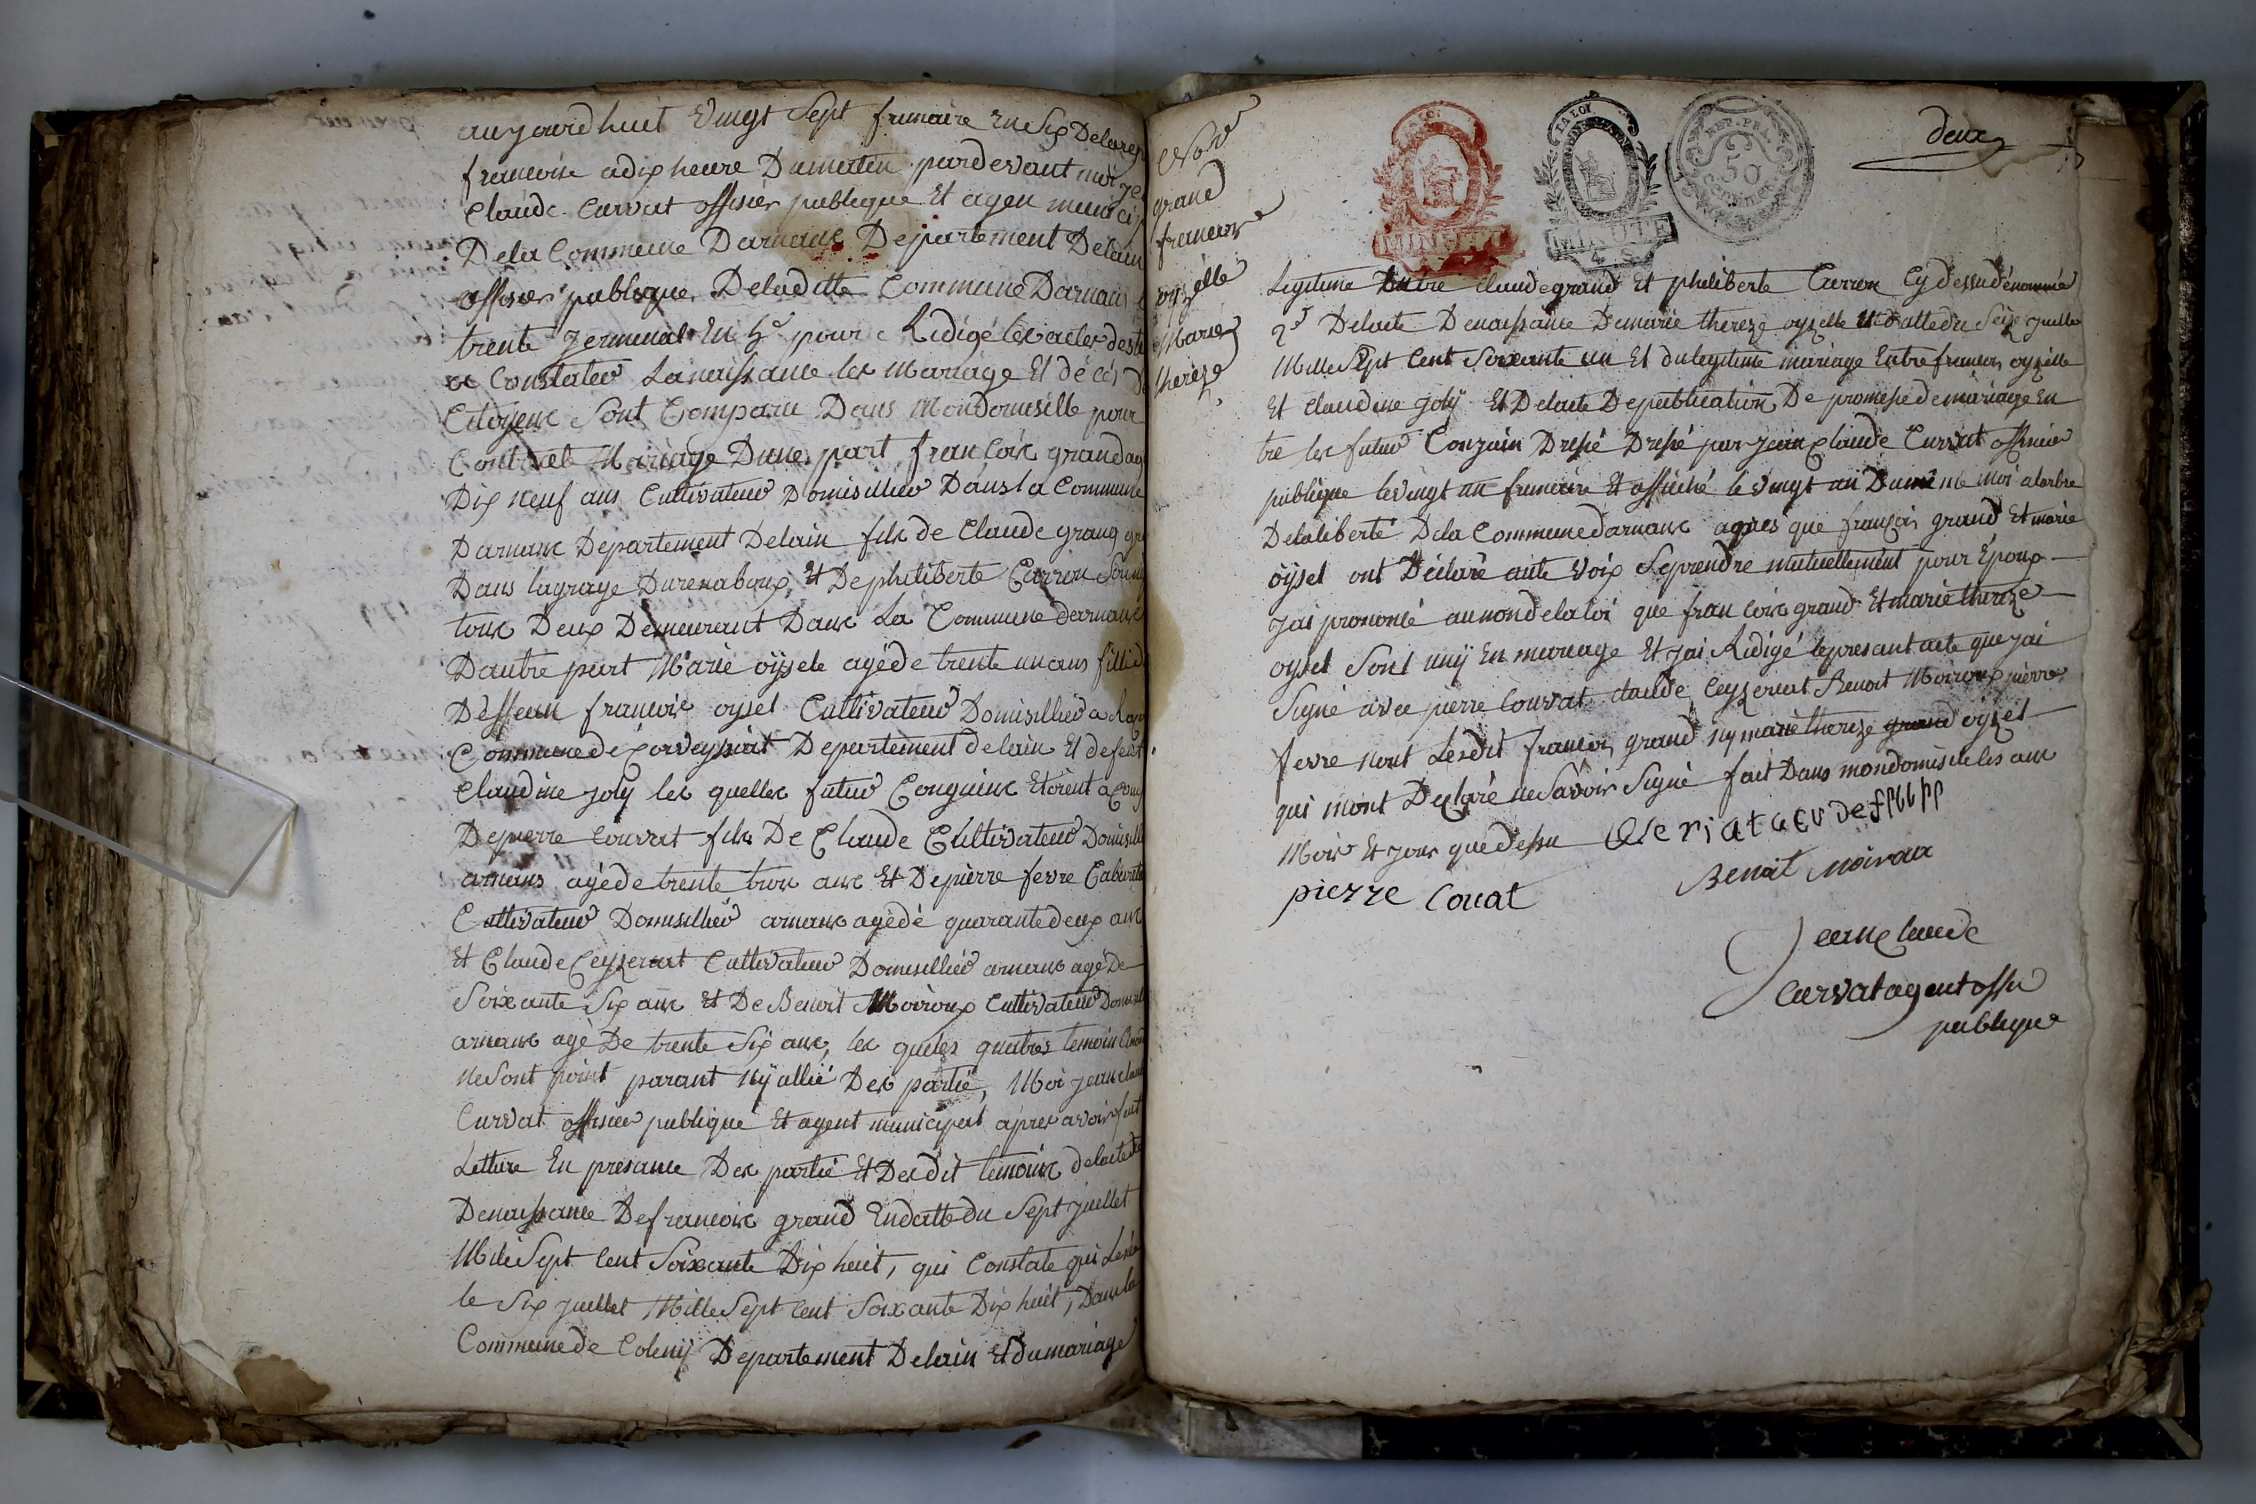 aujourdhuit vingt Sept frimaire En Six Dela rep
francoise a dix heure Dumatin pardevant moi je
Claude Curvat offisier publique Et agen munici
Dela Commune Darnanc Departement Delain
offisier publique Deladitte Commune Darnanc
trente germinal En 5e pour Ridigé les actes desti
a Constater La naissance les Mariage Et décès D
Citoyenc Sont Comparu Dans Mondomisille pour
Contrat Mariage Dune part francoix grand ag
Dix neuf ans Cultivateur Domisillier Dans la Commune
Darnanc Departement Delain fils de Claude grang gr
Dans lagrage Durenaboux, Et Dephiliberte Carron
tous Deux Demeurant Dans La Commune darnanc
Dautre part Marie oÿsele agéde trente un ans fille d
Deffeun francoix oysel Cultivateur Domisillier a
Commune de Corveyssiat Departement delain Et defeut
Claudine joly les quelles futur Conguinc Etoient acom
Depierre Couvat fils De Claude Cultivateur Domisill
arnans agéde trente trois anc Et De pierre fevre
Cultivateur Domisillier arnanc agédé quarante deux anc
Et Claude Ceyzeriat Cultivateur Domisillier arnanc agé De
Soixante Six anc Et De Benoit Moiroux Cultivateur Domisil
arnanc agé De trente Six anc, les queles quatres temoin
ne Sont point parant Nÿ allié Des partie, Moi jean clau
Curvat offisier publique Et agent municipal apres avoir fait
Letture En presance Des partie Et Des dit temoins delacte
Denaissance De francoix grand En datte du Sept juillet
Mile Sept Cent Soixante Dix huit, qui Constate qui
le Six juillet Mille Sept Cent Soixante Dix huit, Dans la
Commune de Coleny Departement Delain Et du mariage
grand
francois
oyzelle
Marie
thereze
LA LOI
MINUTE
LA LOI
MINUTE
REP. FRA.
50
CENTIMES
deux
Legitime Entre Claude grand Et philiberte Carron Cy dessu dénommé
2e Delacte Denaissance Demarie thereze oyzelle En datte du Seize juille
Mille Sept Cent Soixante un Et du legitime mariage Entre francois oyzelle
Et Claudine joly Et Delacte Depublication De promesse demariage En
tre les futur Conjoin Dressé Dressé par jean Claude Curvat offisier
publique le vingt un frimaire Et affiché le vingt un Dumême moi a larbre
Delaliberté Dela Commune darnanc apres que françois grand Et marie
öÿsel ont Déclaré aute voix Seprendre mutuellement pour Époux
jai prononcé aunon delaloi que francoix grand Et marie thereze
oysel Sont unÿ En mariage Et jai Ridigé lepresant acte que jai
Signé avec pierre Couvat Claude Ceyzeriat Benoit Moiroux pierre
fevre nont Lesdit francois grand ny marie thereze grand oyzel
qui mont Declaré ne Savoir Signé fait Dans mondomisile les anc
Moir Et jour que dessu
Benoit Moiroux
pierre Couat
Jean Claude
Curvat agent offi
publique